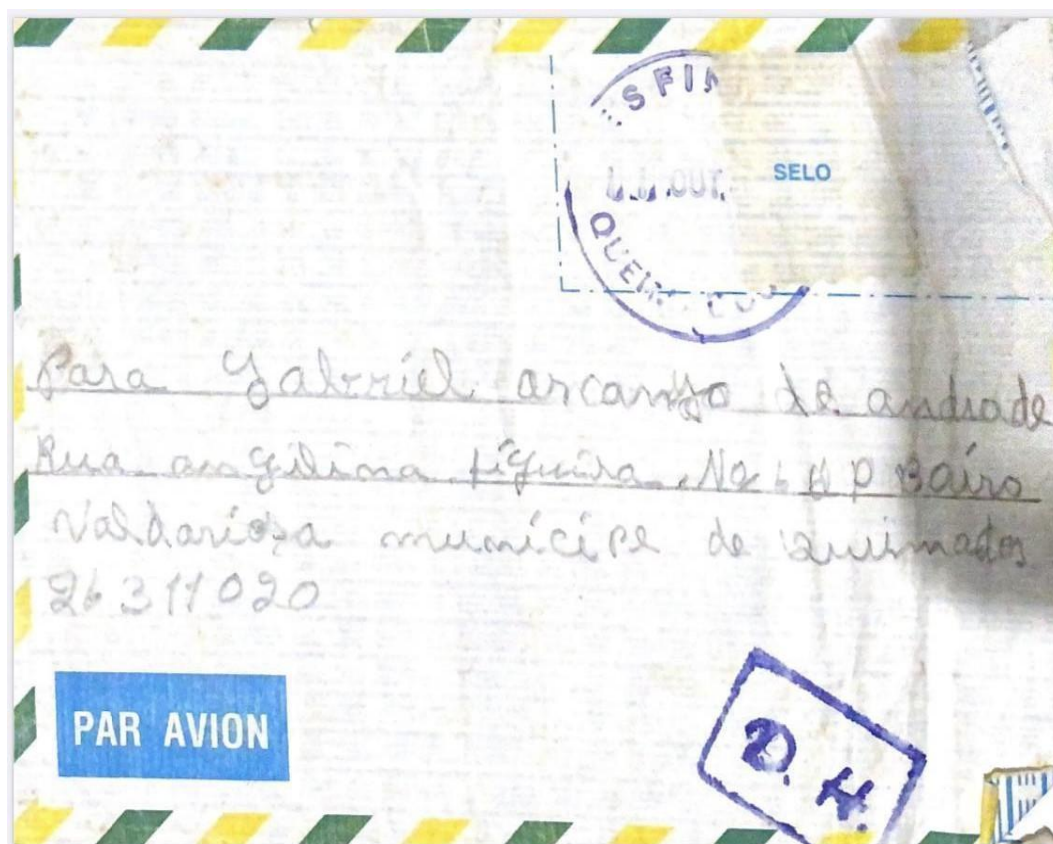 SFI
OUT.
SELO
QUEI
Para Gabriel arcanjo de andrade
Rua angilina figuira Bairo
Valdarioza municipe de quimados
26311020
PAR AVION
D. H.